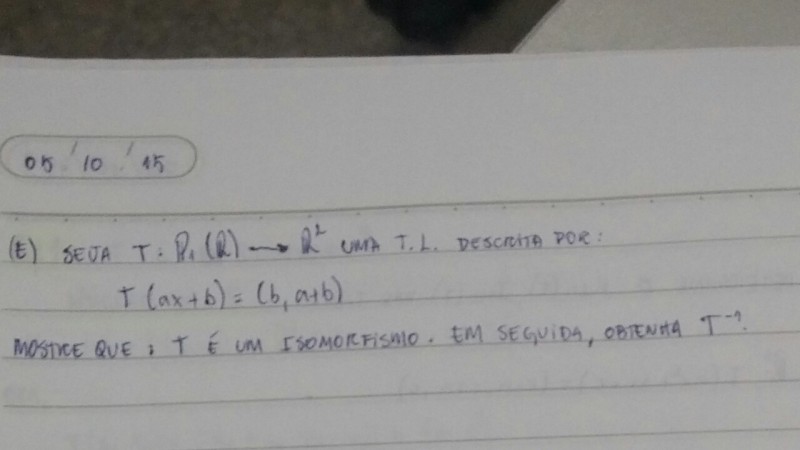 05 / 10 / 15
(E) SEJA T: P₁(R) → R² UMA T.L. DESCRITA POR:
T(ax+b) = (b, a+b)
MOSTRE QUE: T É UM ISOMORFISMO. EM SEGUIDA, OBTENHA T⁻¹.